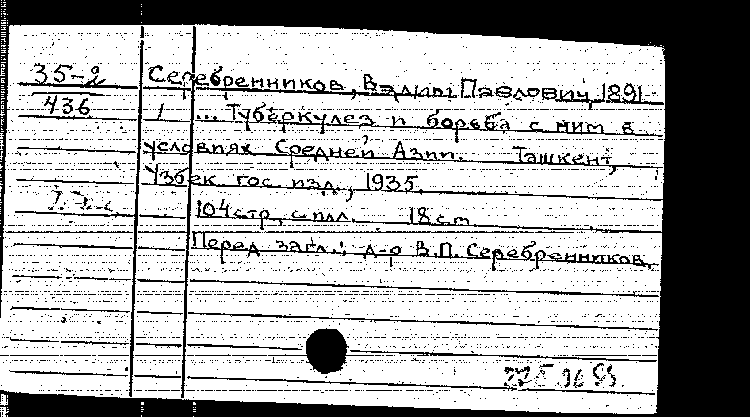 35-2 Серебренников, Вадим Павлович, 1891-
436 1 ... Туберкулез и борьба с ним в
условиях Средней Азии. Ташкент,
Узбек. гос. изд., 1935.
104 стр., с илл. 18 cm
Перед загл.: д-р В.П. Серебренников.